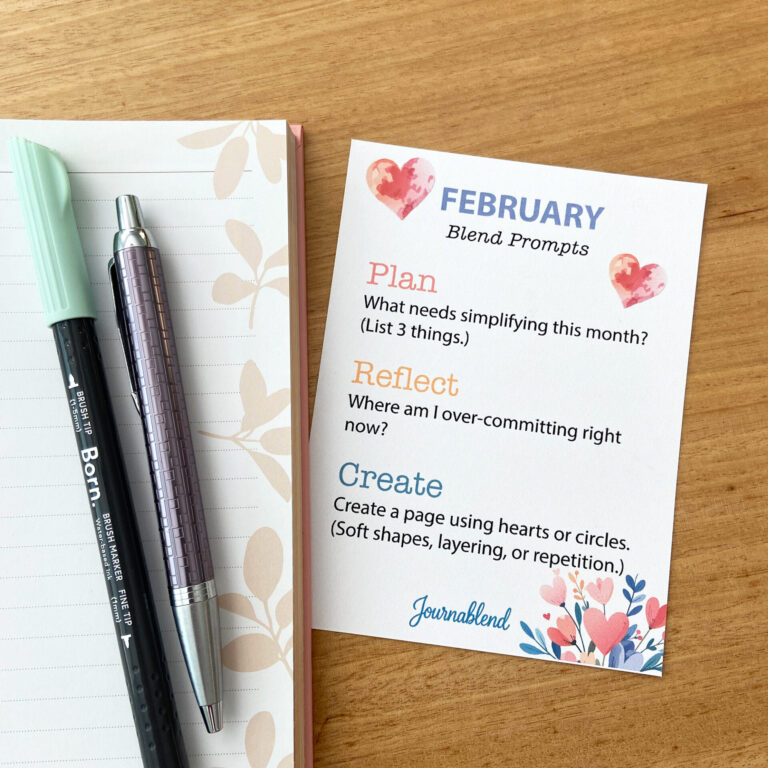 BRUSH TIP
(1-5mm)
Born.
BRUSH MARKER
Water-based Ink
FINE TIP
(1mm)
FEBRUARY
Blend Prompts
Plan
What needs simplifying this month?
(List 3 things.)
Reflect
Where am I over-committing right
now?
Create
Create a page using hearts or circles.
(Soft shapes, layering, or repetition.)
Journablend